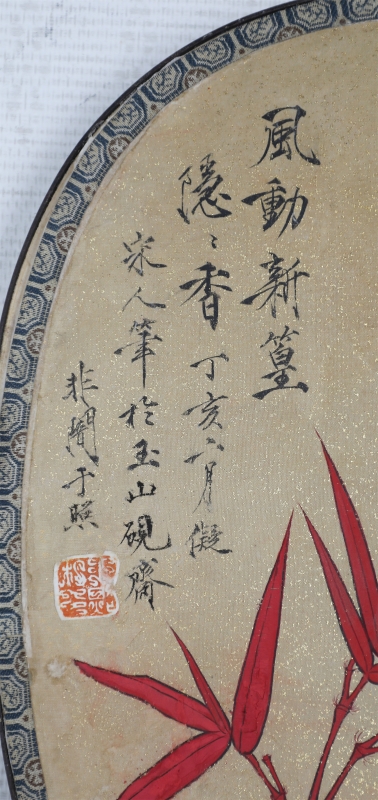 風動新篁
隱〻香丁亥六月擬
宋人筆於玉山硯齋
非闇于照